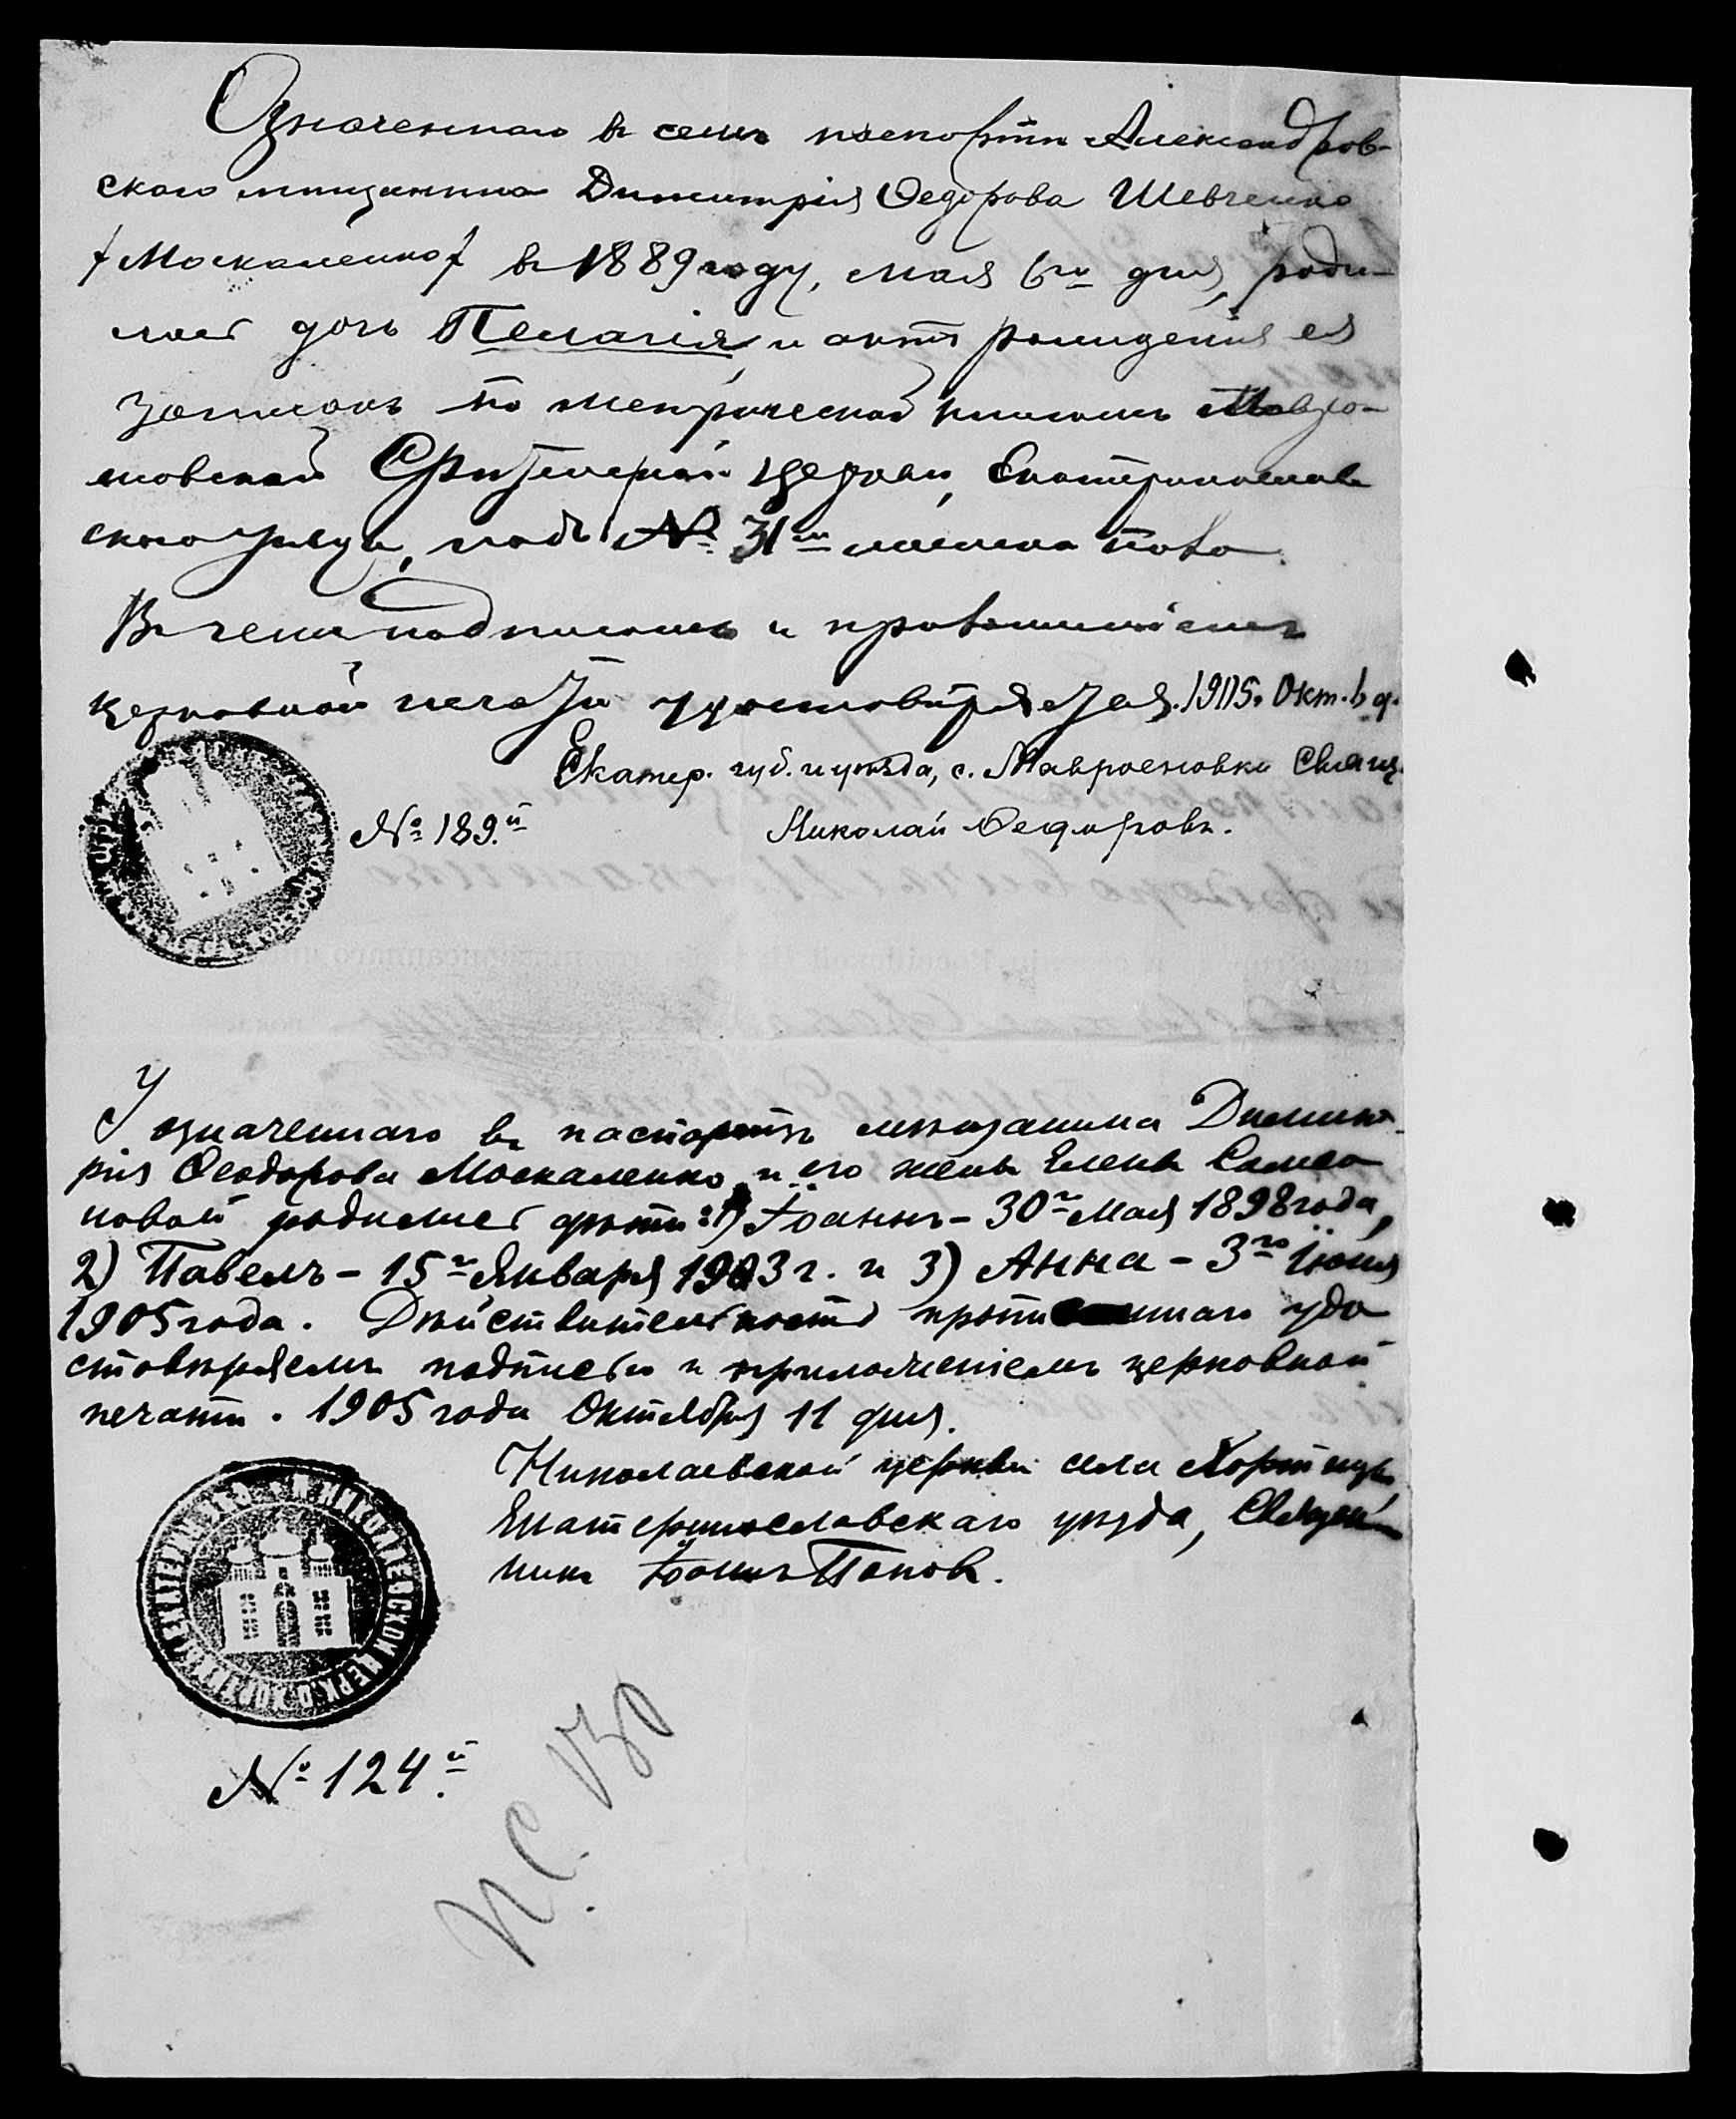 Означеннаго въ семъ паспортѣ Александров-
скаго мѣщанина Димитрія Ѳедорова Шевченко
/Москаленко/ въ 1889 году, мая 6го дня, роди-
лась дочь Пелагія, и актъ рожденія ея
записанъ по метрической
церкви, Екатеринослав
скаго уѣзда, подъ № 31м
В чемъ подписомъ и
церковной печати удостовѣряется. 1905. Окт. 6 д.
Екатер. губ. и уѣзда, с. Свящ.
№ 189.й Николай Ѳедоровъ.
У означеннаго въ паспортѣ мѣщанина Димит-
рія Ѳеодорова Москаленко и его жены Елены Симео
новой родились дѣти: 1) Іоаннъ - 30го Мая 1898 года,
2) Павелъ - 15го Января 1903 г. и 3) Анна - 3го Іюня
1905 года. Дѣйствительность удо
стовѣряемъ подписью и приложеніемъ церковной
печати. 1905 года Октября 11 дня.
Николаевской церкви села Хортицы
Екатеринославскаго уѣзда, Священ
никъ Іоаннъ Поповъ.
№ 124.й